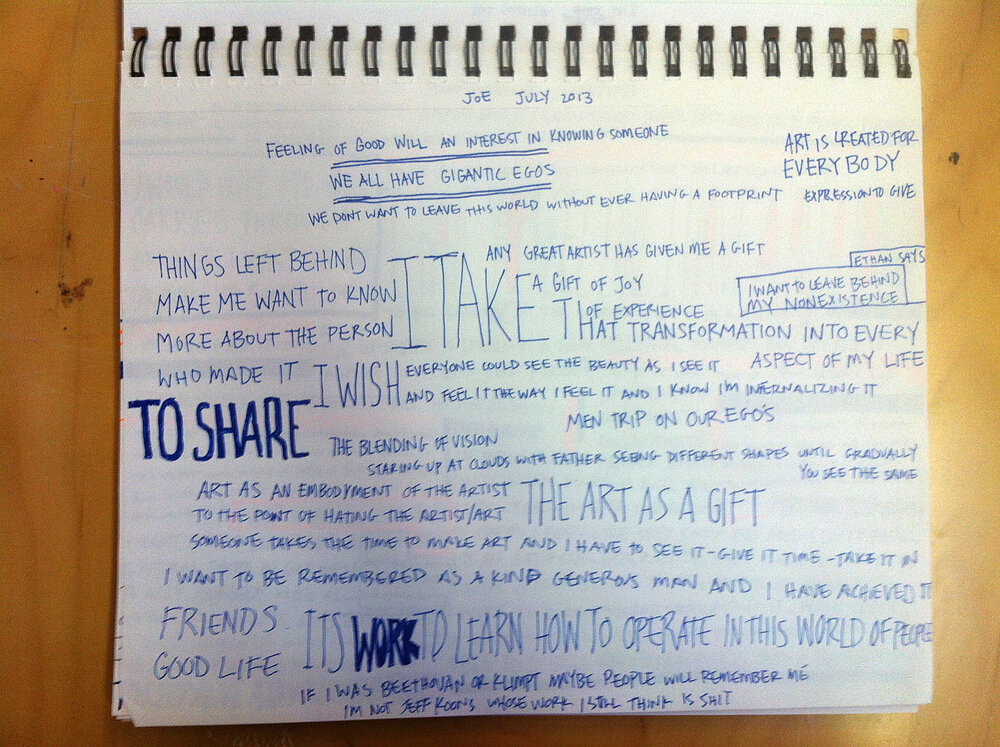 JOE JULY 2013
FEELING OF GOOD WILL AN INTEREST IN KNOWING SOMEONE
WE ALL HAVE GIGANTIC EGOS
WE DONT WANT TO LEAVE THIS WORLD WITHOUT EVER HAVING A FOOTPRINT
ART IS CREATED FOR
EVERYBODY
EXPRESSION TO GIVE
THINGS LEFT BEHIND
MAKE ME WANT TO KNOW
MORE ABOUT THE PERSON
WHO MADE IT
I TAKE
ANY GREAT ARTIST HAS GIVEN ME A GIFT
A GIFT OF JOY
OF EXPERIENCE
THAT TRANSFORMATION INTO EVERY
ASPECT OF MY LIFE
ETHAN SAYS
I WANT TO LEAVE BEHIND
MY NONEXISTENCE
I WISH
EVERYONE COULD SEE THE BEAUTY AS I SEE IT
AND FEEL IT THE WAY I FEEL IT AND I KNOW I'M INFERNALIZING IT
TO SHARE
MEN TRIP ON OUR EGO'S
THE BLENDING OF VISION
STARING UP AT CLOUDS WITH FATHER SEEING DIFFERENT SHAPES UNTIL GRADUALLY
YOU SEE THE SAME
ART AS AN EMBODYMENT OF THE ARTIST
TO THE POINT OF HATING THE ARTIST/ART
THE ART AS A GIFT
SOMEONE TAKES THE TIME TO MAKE ART AND I HAVE TO SEE IT - GIVE IT TIME - TAKE IT IN
I WANT TO BE REMEMBERED AS A KIND GENEROUS MAN AND I HAVE ACHIEVED IT
FRIENDS
GOOD LIFE
ITS WORK TO LEARN HOW TO OPERATE IN THIS WORLD OF PEOPLE
IF I WAS BEETHOVAN OR KLIMPT MAYBE PEOPLE WILL REMEMBER ME
I'M NOT JEFF KOONS WHOSE WORK I STILL THINK IS SHIT